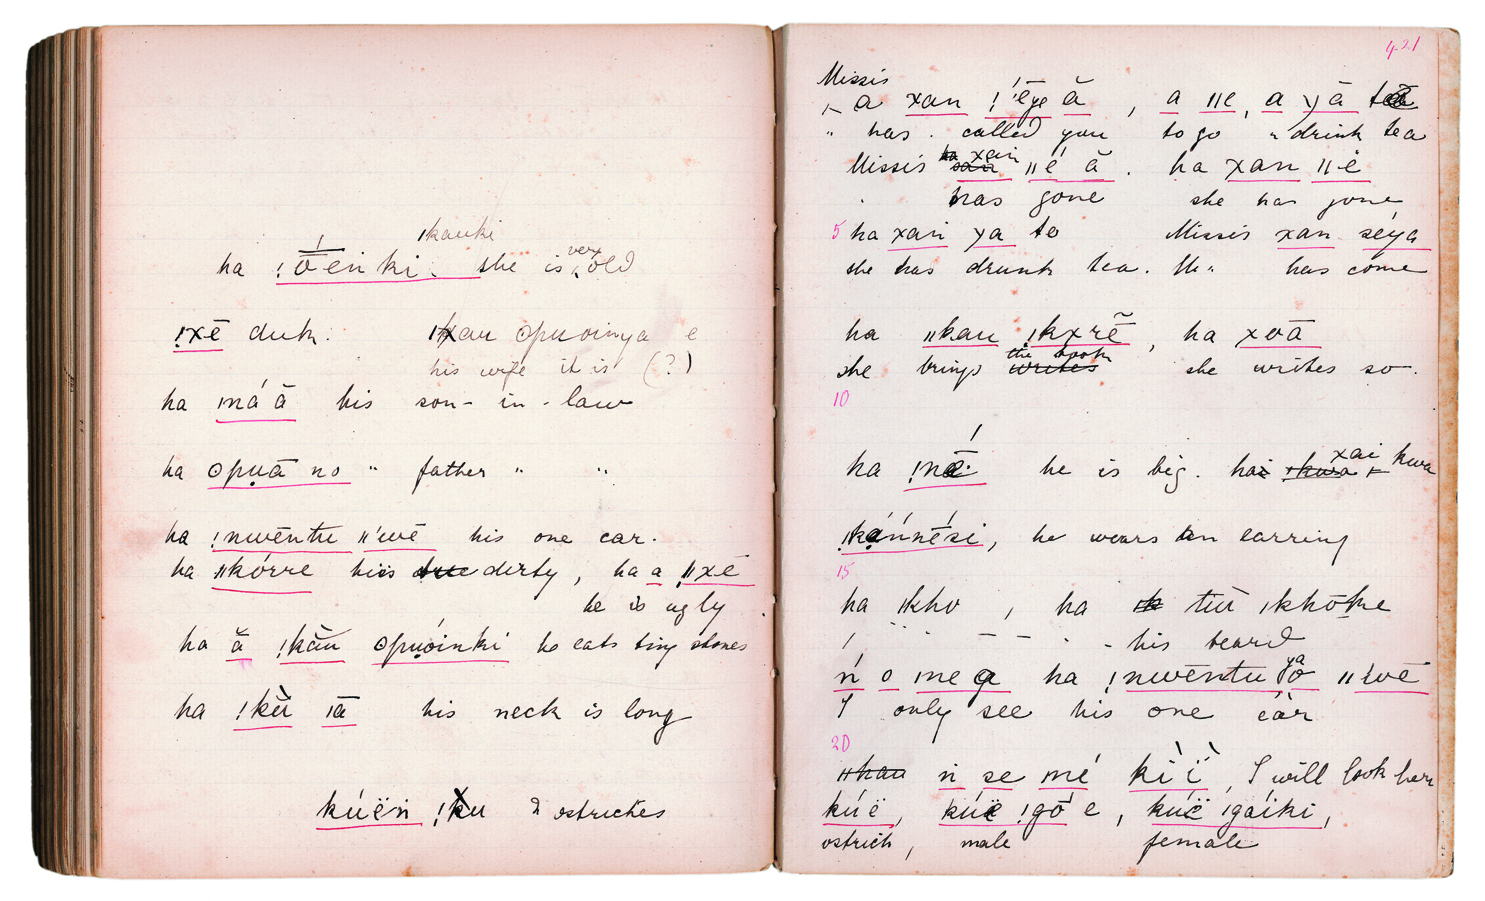 ǀkauki
ha ǃōënki. she is very old
ǃxē duk. his wife it is (?)
ha máā his son-in-law
ha ʘpuā no " father " "
ha ǃnwēntu ǁ'wē his one ear.
ha ǁkórre his dirty, ha a ǁxē
he is ugly
ha ă ǃkău ʘpuóinki he eats tiny stones
ha ǃkù ıā his neck is long
kúëń ǃku 2 ostriches
421
Missis
a xan ǃ'ēye ă, a ǁe, a yā
" has called you to go " drink tea
Missis ha xan ǁé ă. ha xan ǁé
has gone she has gone
5 ha xan ya te Missis xan séya
she has drunk tea. M " has come
ha ǁkau ǃkxrē̃, ha xoā
she brings the book she writes so.
10
ha he is big. xai kwa
ǃkánnēsi, he wears an earring
15
ha ǀkho, ha tū ǀkhō
his beard
ń o me ha ǃnwēntu yā ǁ'wē
I only see his one ear
20
ǁkau ń se mé kìì, I will look here
kúë, kúë ǃgó e, kúë ǃgáiki,
ostrich, male female